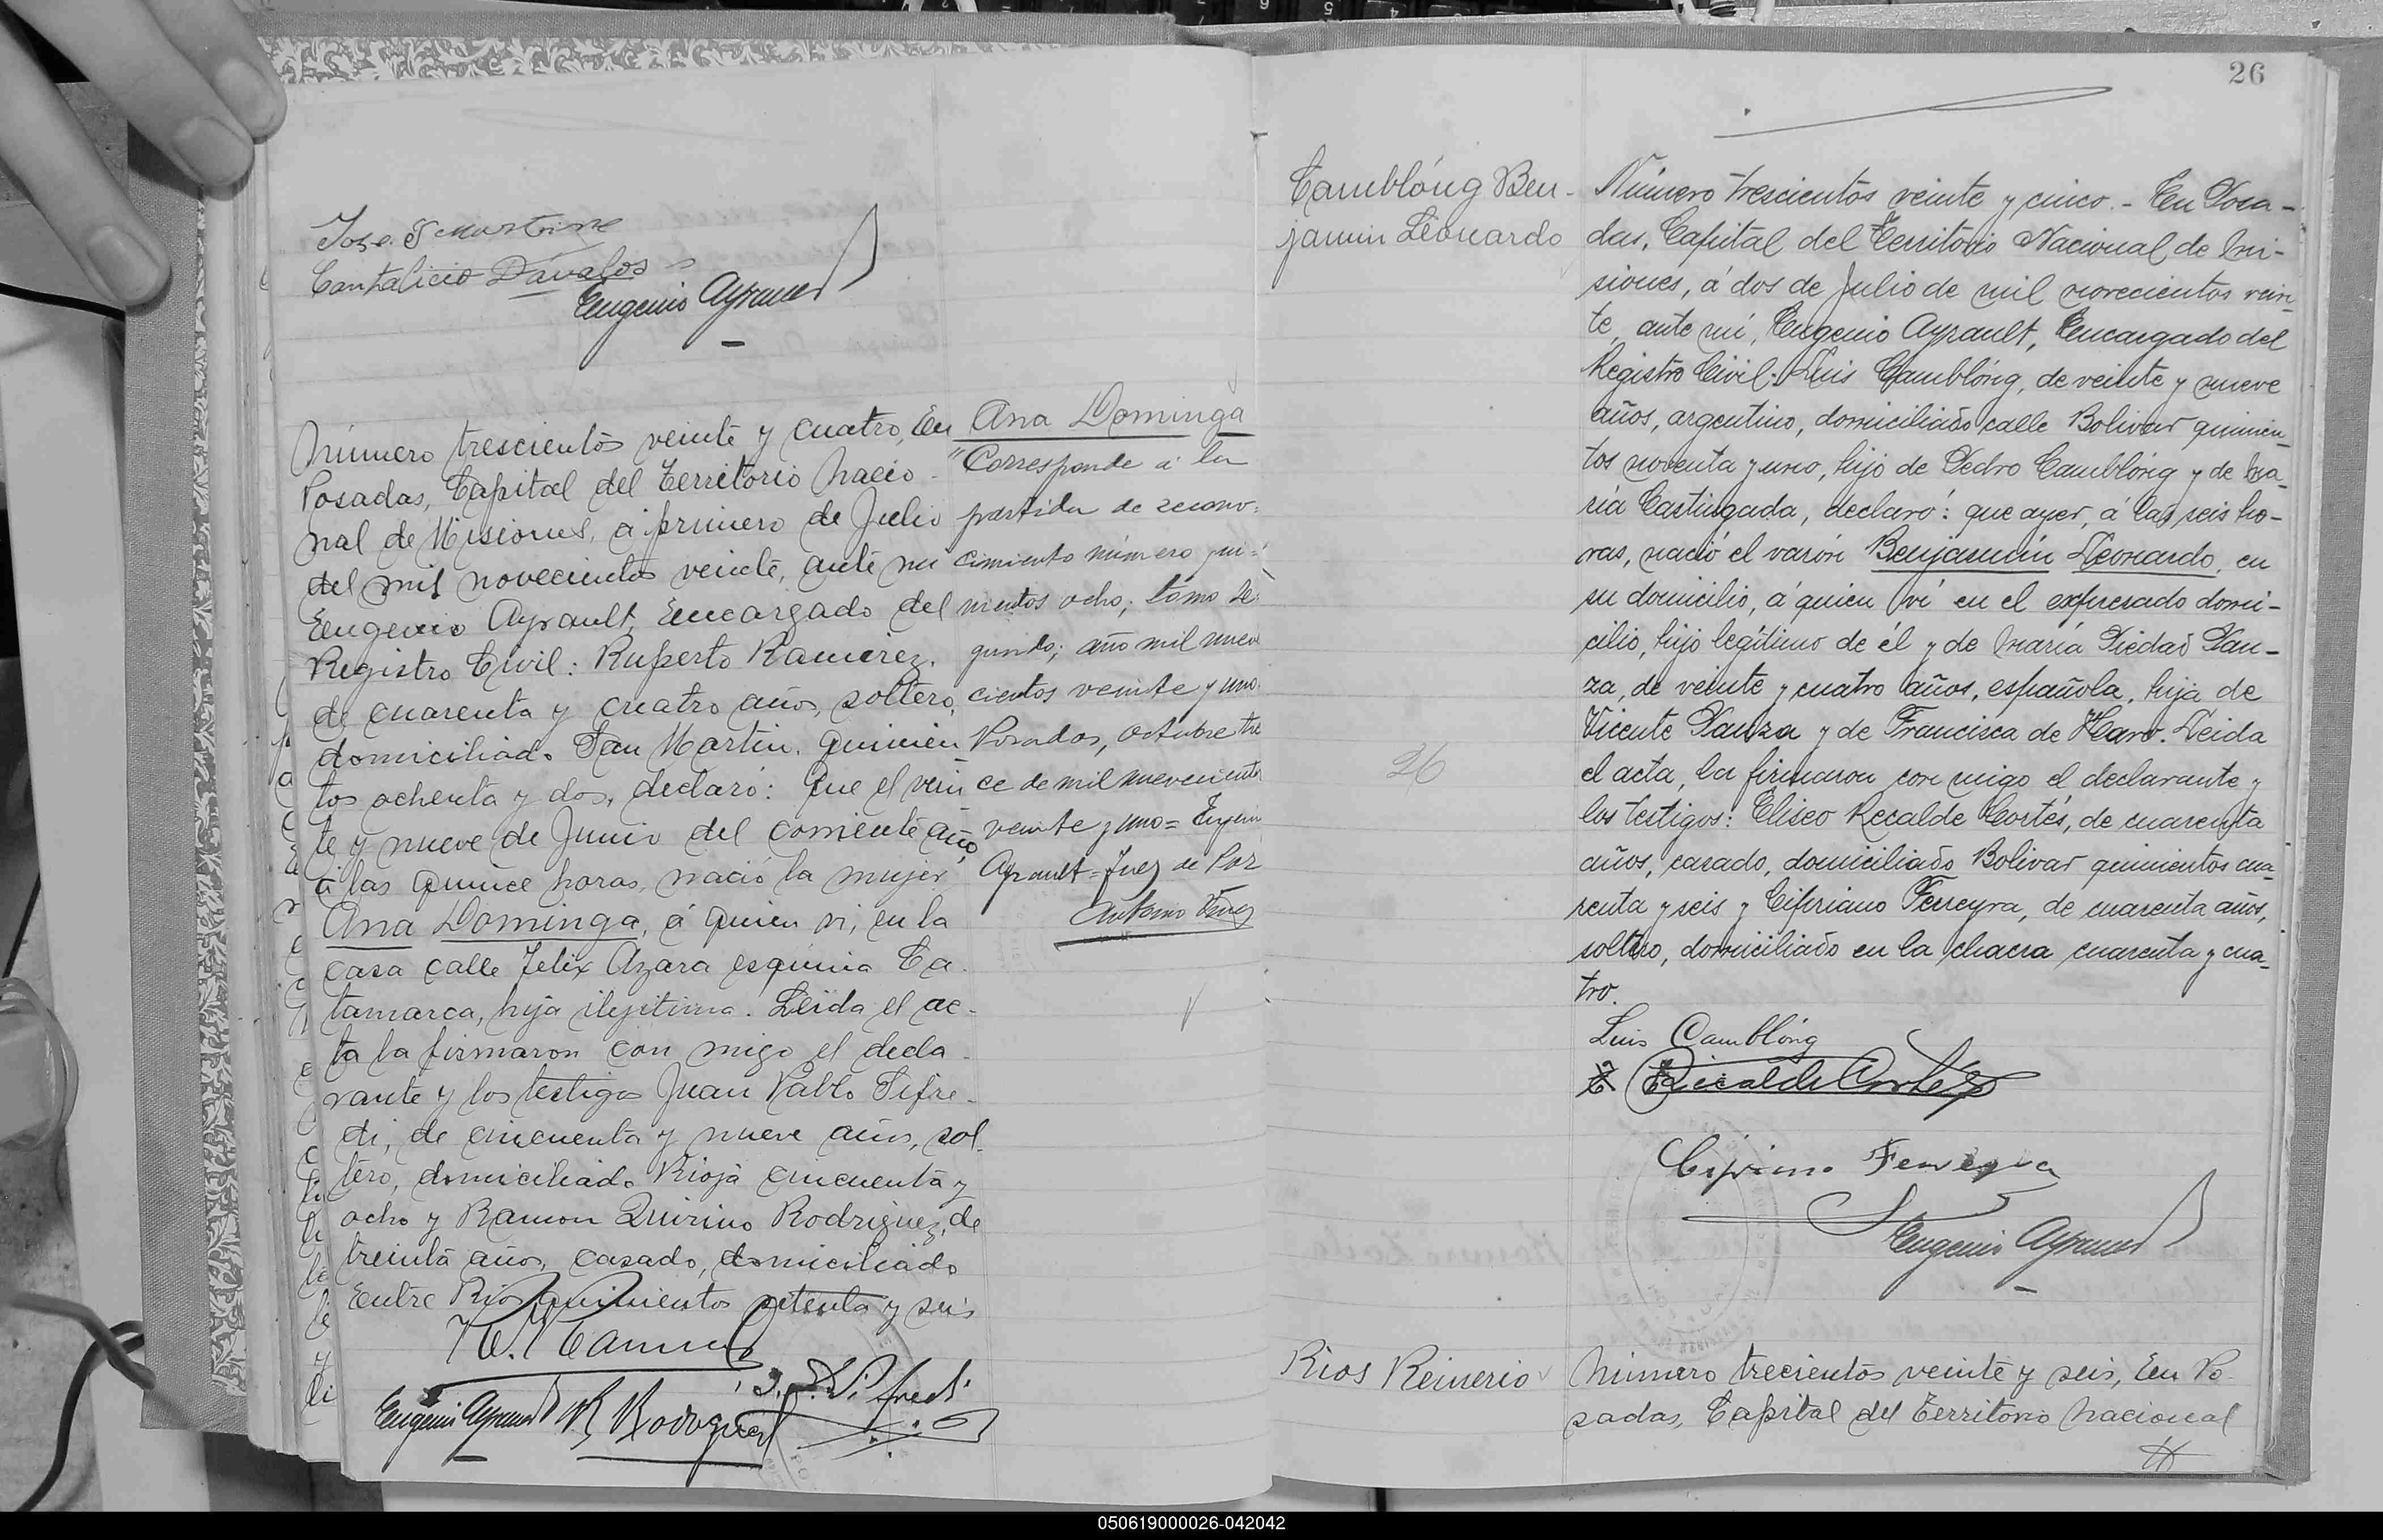 Cantalicio Dávalos
Eugenio Ayrault
Número trescientos veinte y cuatro, En
Posadas, Capital del Territorio Nacio-
nal de Misiones, á primero de Julio
del mil novecientos veinte, ante mi
Eugenio Ayrault, Encargado del
Registro Civil: Ruperto Ramirez,
de cuarenta y cuatro años, soltero,
domiciliado San Martin, quinien
tos ochenta y dos, declaró: que el vein
te y nueve de Junio del corriente año
á las quince horas, nació la mujer
Ana Dominga, á quien vi, en la
casa calle Felix Azara esquina Ca-
tamarca, hija ilegitima. Leida el ac-
ta la firmaron con migo el decla-
rante y los testigos Juan Pablo Pifre-
di, de cincuenta y nueve años, sol-
tero, domiciliado Rioja cincuenta y
ocho y Ramon Quirino Rodriguez, de
treinta años, casado, domiciliado
Entre Rios quinientos setenta y seis
R. Ramirez
J. P. Pifredi
Eugenio Ayrault R Rodriguez
Ana Dominga
"Corresponde á la
partida de recono-
cimiento número qui-
nientos ocho; tomo se-
gundo; año mil nueve
cientos veinte y uno.
Posadas, Octubre tre
ce de mil nuevecientos
veinte y uno = Eugenio
Ayrault = Juez de Paz
Antonio
26
Camblóng Ben-
jamin Leonardo
Número trescientos veinte y cinco.- En Posa-
das, Capital del Territorio Nacional de Mi-
siones, á dos de Julio de mil novecientos vein-
te, ante mí, Eugenio Ayrault, Encargado del
Registro Civil: Luis Camblóng, de veinte y nueve
años, argentino, domiciliado calle Bolivar quinien-
tos noventa y uno, hijo de Pedro Camblóng y de Ma-
ría Castingada, declaró: que ayer, á las seis ho-
ras, nació el varón Benjamín Leonardo, en
su domicilio, á quien ví en el expresado domi-
cilio, hijo legítimo de él y de María Piedad Pan-
za, de veinte y cuatro años, española, hija de
Vicente Panza y de Francisca de Haro. Leida
el acta, la firmaron con migo el declarante y
los testigos: Eliseo Recalde Cortés, de cuarenta
años, casado, domiciliado Bolivar quinientos cua-
renta y seis y Cipriano Ferreyra, de cuarenta años,
soltero, domiciliado en la chacra cuarenta y cua-
tro.
26
Luis Camblóng
E Recalde Cortés
Cipriano Ferreyra
Eugenio Ayrault
Rios Reinerio
Número trecientos veinte y seis, En Po-
sadas, Capital del Territorio Nacional
050619000026-042042